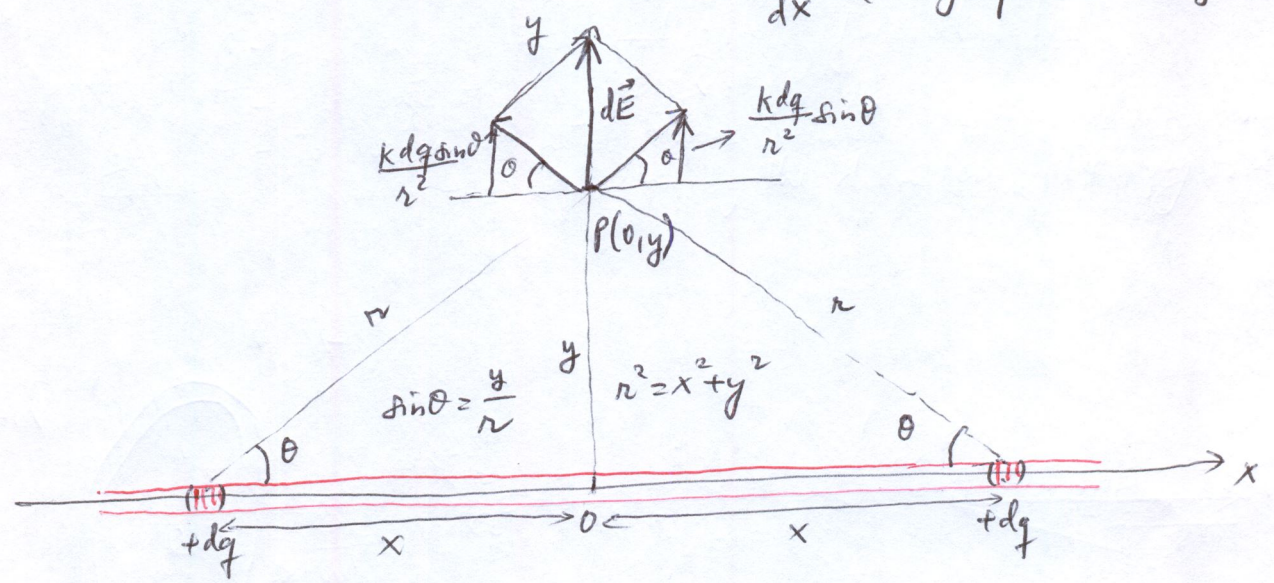 dx
y
dE⃗
kdq/r² sinθ
kdqsinθ/r²
θ
θ
P(0,y)
r
r
y
sinθ = y/r
r²=x²+y²
θ
θ
x
+dq
x
0
x
+dq